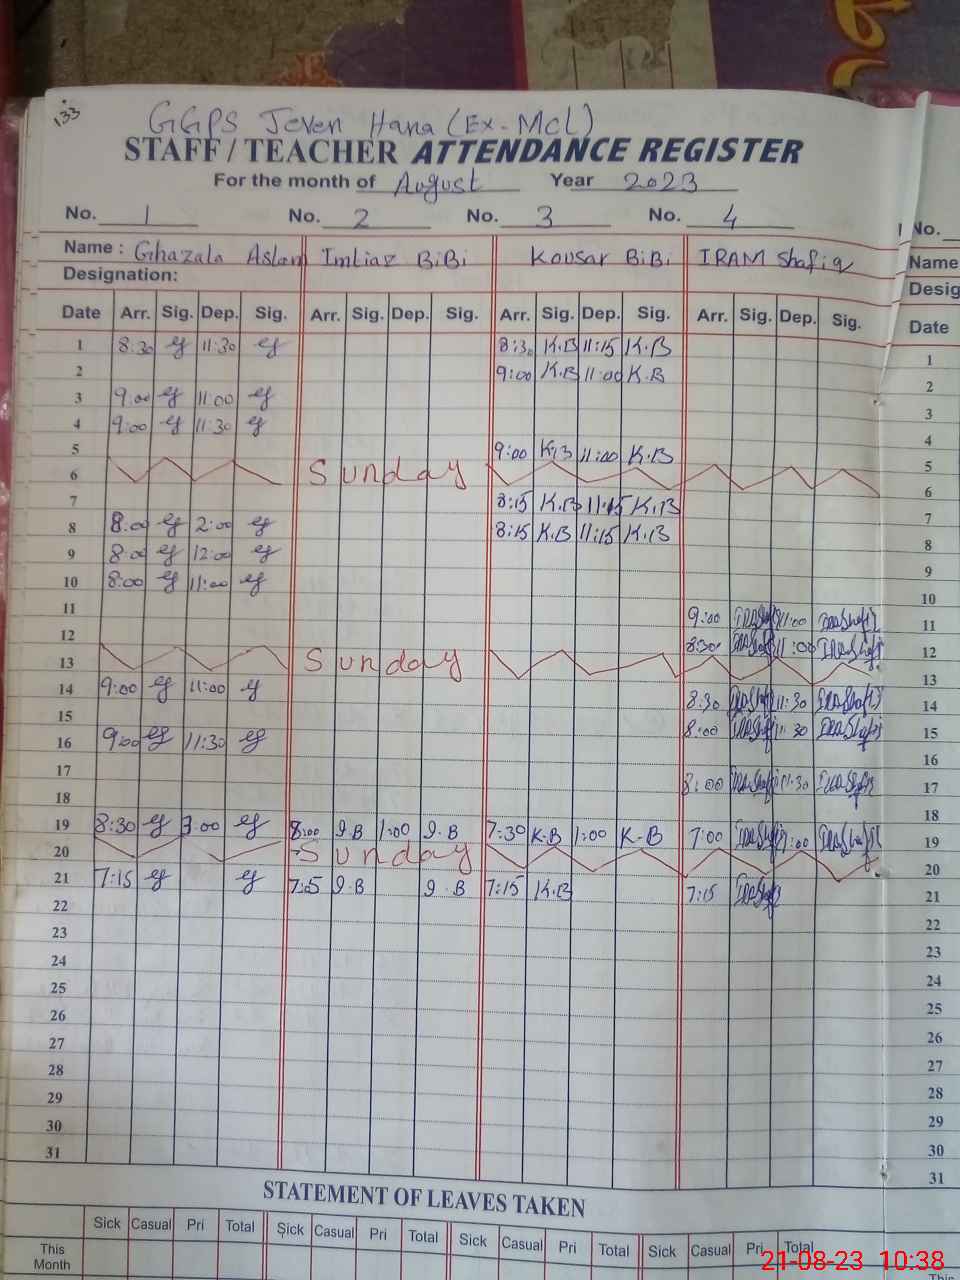 133
GGPS Jeven Hana (Ex-McL)
STAFF / TEACHER ATTENDANCE REGISTER
For the month of August Year 2023
No. 1 No. 2 No. 3 No. 4 No.
Name : Ghazala Aslam Imtiaz BiBi Kousar BiBi IRAM Shafiq Name
Designation: Desig
Date Arr. Sig. Dep. Sig. Arr. Sig. Dep. Sig. Arr. Sig. Dep. Sig. Arr. Sig. Dep. Sig. Date
1 8:30 11:30 8:30 K.B 11:15 K.B 1
2 9:00 K.B 11:00 K.B 2
3 9:00 11:00 3
4 9:00 11:30 4
5 9:00 K.B 11:00 K.B 5
6 Sunday 6
7 8:15 K.B 11:15 K.B 7
8 8:00 2:00 8:15 K.B 11:15 K.B 8
9 8:00 12:00 9
10 8:00 11:00 10
11 9:00 11:00 11
12 8:30 11:00 12
13 Sunday 13
14 9:00 11:00 8:30 11:30 14
15 8:00 11:30 15
16 9:00 11:30 16
17 8:00 11:30 17
18 18
19 8:30 8:00 I.B 1:00 I.B 7:30 K.B 1:00 K-B 7:00 19
20 Sunday 20
21 7:15 I.B I.B 7:15 K.B 7:15 21
22 22
23 23
24 24
25 25
26 26
27 27
28 28
29 29
30 30
31 31
STATEMENT OF LEAVES TAKEN
Sick Casual Pri Total Sick Casual Pri Total Sick Casual Pri Total Sick Casual Pri Total
This Month This
21-08-23 10:38